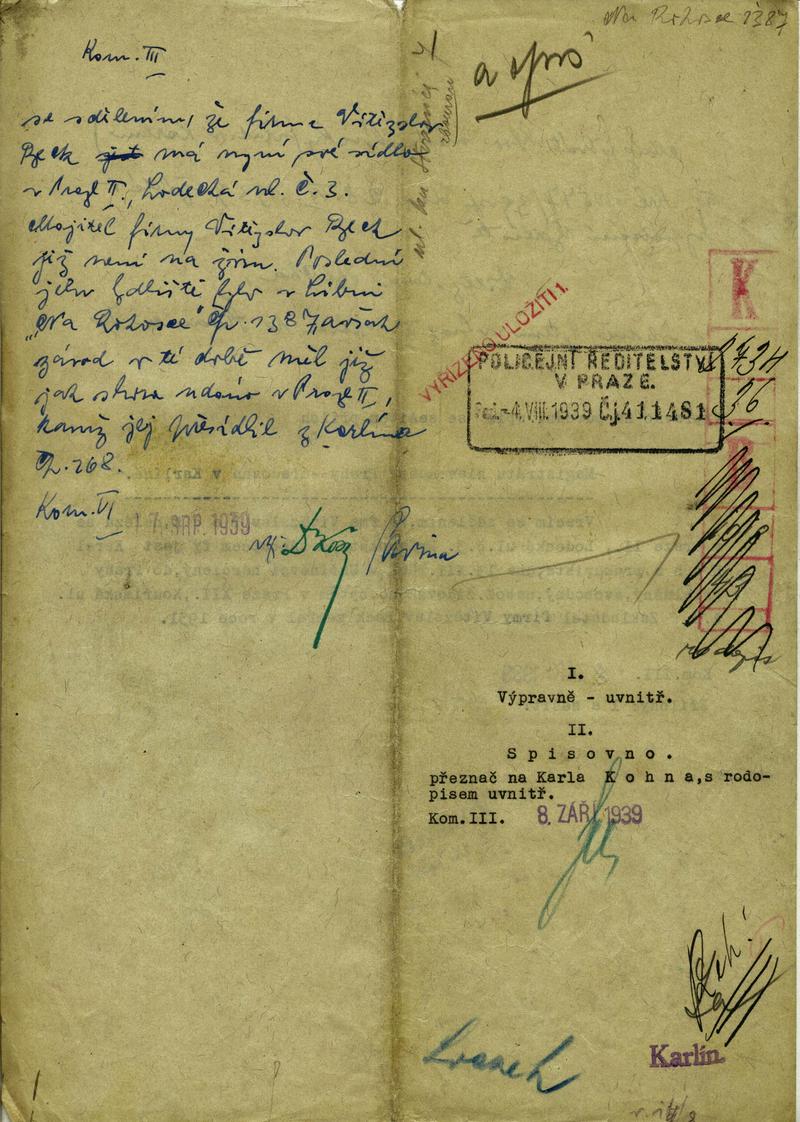 Kom. III
se sdělením, že firma Vítězslav
Beck má nyní své sídlo
v Praze II., Lodecká ul. č. 3.
Majitel firmy Vítězslav Beck
již není na živu. Poslední
jeho bydliště bylo v Libni
„Na Rokosce" čp. 1387, avšak
závod v té době měl již
jak shora udáno v Praze II,
kamž jej přesídlil z Karlína
čp. 268.
Kom. VI
17. SRP. 1939
Na Rokosce 1387
a spis
VYŘÍZENO ULOŽITI 1.
K
POLICEJNÍ ŘEDITELSTVÍ
V PRAZE.
-4.VIII.1939 Čj. 411481
I.
Výpravně - uvnitř.
II.
Spisovno.
přeznač na Karla Kohna, s rodo-
pisem uvnitř.
Kom.III. 8. ZÁŘÍ 1939
Karlín.